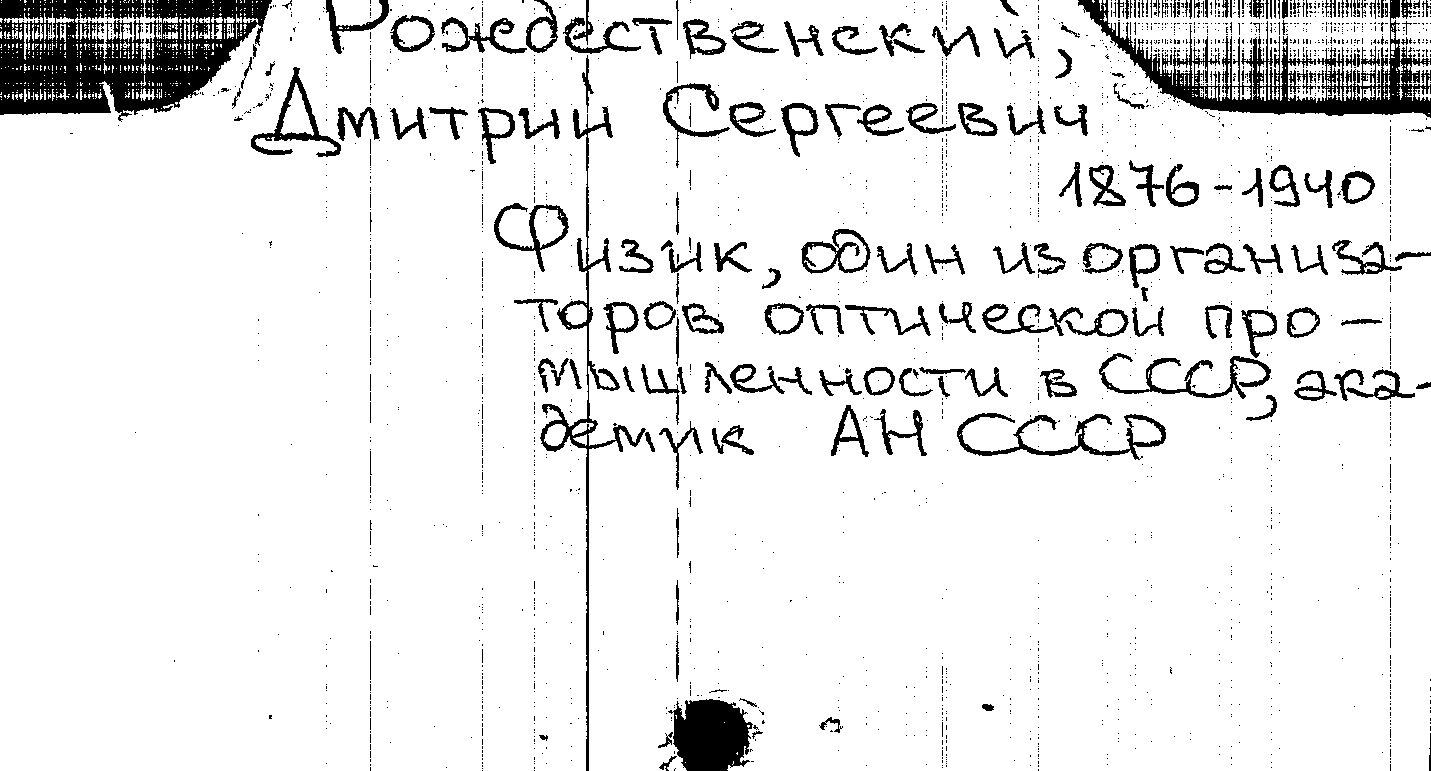 Рождественский,
Дмитрий Сергеевич
1876-1940
Физик, один из организа-
торов оптической про-
мышленности в СССР, ака-
демик АН СССР